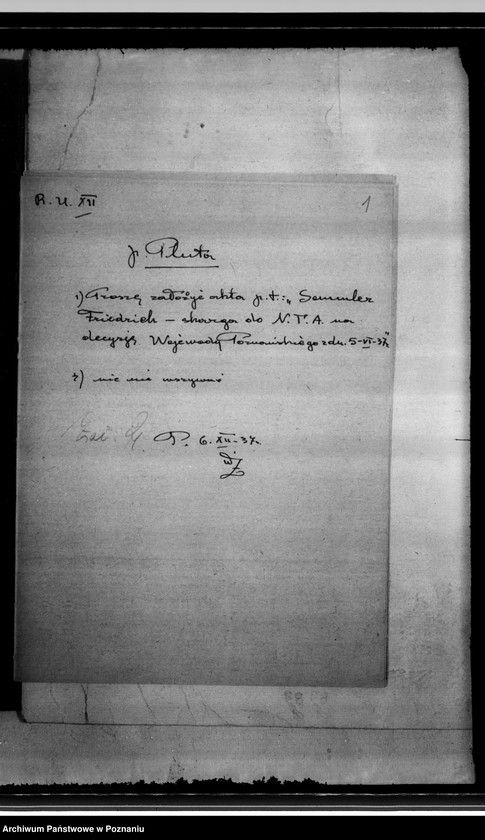 R. U. XII
1
p. Pluta
1) Proszę założyć akta p.t.: "Semmler
Friedrich – skarga do N.T.A. na
decyzję Wojewody Poznańskiego z dn. 5-VI-37"
2) nic nie wszywać
Zał.
P. 6.XII-37.
Archiwum Państwowe w Poznaniu